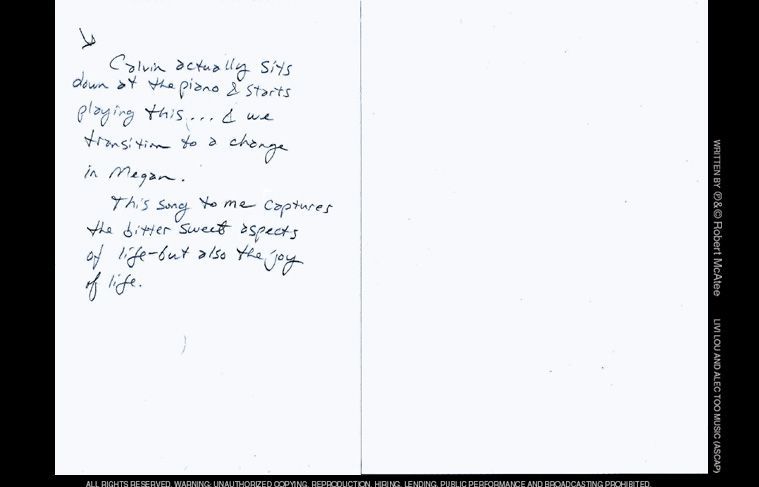 Calvin actually sits
down at the piano & starts
playing this... & we
transition to a change
in Megan.
This song to me captures
the bitter sweet aspects
of life-but also the joy
of life.
WRITTEN BY ℗&© Robert McAtee
LIVI LOU AND ALEC TOO MUSIC (ASCAP)
ALL RIGHTS RESERVED. WARNING: UNAUTHORIZED COPYING, REPRODUCTION, HIRING, LENDING, PUBLIC PERFORMANCE AND BROADCASTING PROHIBITED.